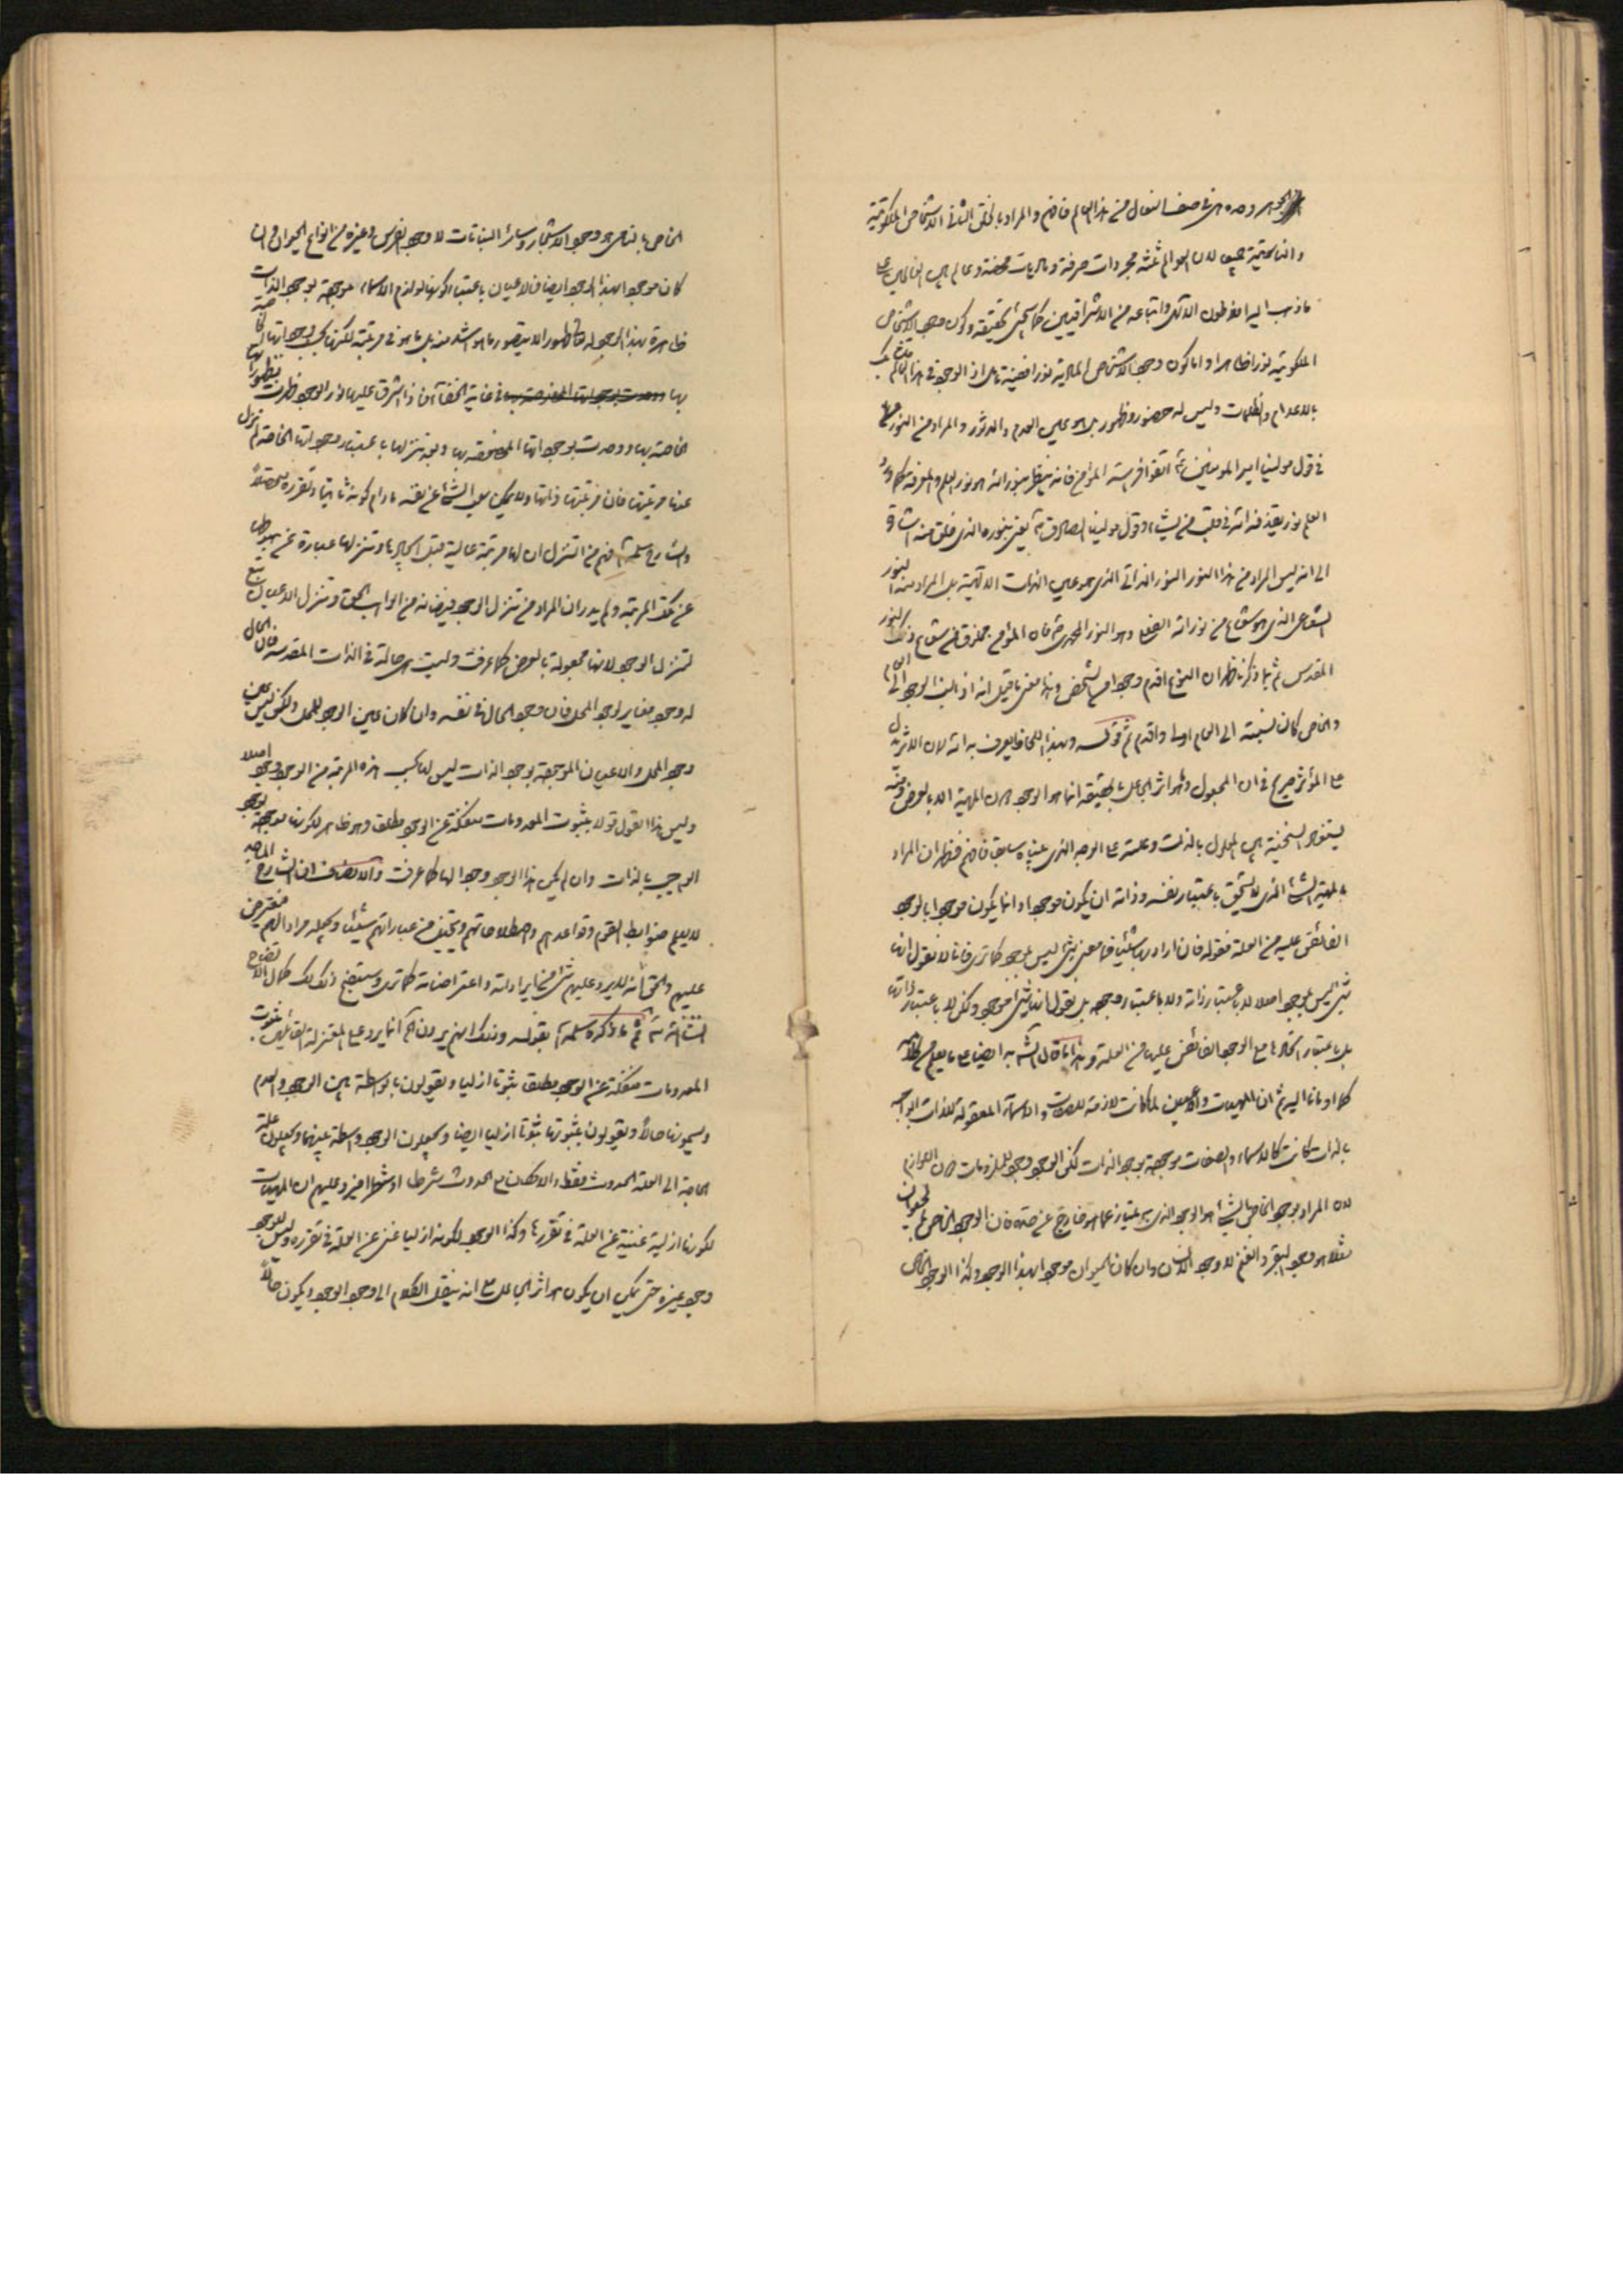 الجوهر وحده في صف النعال من هذا العالم فافهم والمراد بالخلق الثاني الاشخاص الملكوتية
والناسوتية جميعا لان العوالم ثلثة مجردات صرفة وماديات محضة وعالم بين العالمين على
ما ذهب اليه افلاطون الالهي واتباعه من الاشراقيين كما سيجئ تحقيقه وكون وجود الاشخاص
الملكوتية نورا ظاهرا واما كون وجود الاشخاص المادية نورا فضية لان الوجود في هذا العالم
بالاعدام والظلمات وليس له حضور وظهور بل هو عين العدم والدثور والمراد من النور
في قول مولينا امير المؤمنين اتقوا فراسة المؤمن فانه ينظر بنور الله هو نور العلم والمعرفة كما ورد
العلم نور يقذفه الله في قلب من يشاء وقول مولينا الصادق يعنى بنوره الذي خلق منه اشارة
الى انه ليس المراد من هذا النور النور الذاتي الذي هو عين الذات الالهية بل المراد منه النور
الشعاعي الذي هو شعاع من نور الله وهو النور المحمدي فان المؤمن مخلوق من شعاع ذلك النور
المقدس ثم بما ذكرنا ظهر ان النوع اقدم وجودا من الشخص وهذا معنى ما قيل انه اذا نسب الوجود الى العام
والخاص كان نسبته الى العام اولى واقدم ثم قوله وبهذا اللحاظ يعرف به الله لان الاثر يدل
على المؤثر صريح في ان المجعول واثر الجاعل بالحقيقة انما هو الوجود دون المهية الا بالعرض ومنه
يستفاد السنخية بين المعلول بالذات وعلته على الوجه الذي بيناه سابقا فافهم فظهر ان المراد
بالمهية الشئ الذي لا يستحق باعتبار نفسه وذاته ان يكون موجودا وانما يكون موجودا بالوجود
الفائض عليه من العلة فقوله فان اراد بها شيئا فما معنى شئ ليس بموجود كما ترى فانا لا نقول انها
شئ ليس بموجود اصلا لا باعتبار ذاته ولا باعتبار وجوده بل نقول انها شئ موجود ولكن لا باعتبار ذاتها
بل باعتبار اتحادها مع الوجود الفائض عليها من العلة وهذا ما قال الشيخ به ايضا على ما يعلم من كلامه
كما اومانا اليه ثم ان المهيات والاعيان لما كانت لازمة للصفات والاسماء المعقولة للذات الواجبة
بالذات كانت كالاسماء والصفات موجودة بوجود الذات لكن الوجود وجود للملزومات دون اللوازم
لان المراد بوجود الخاص بالشئ هو الوجود الذي به يمتاز عما هو خارج عن حده فان الوجود الخاص بالحيوان
مثلا هو وجود البقر والغنم لا وجود الانسان وان كان الحيوان موجودا بهذا الوجود وكذا الوجود الخاص
الخاص بالنامي هو وجود الاشجار وسائر النباتات لا وجود الفرس وغيره من انواع الحيوان وان
كان موجودا بهذا الوجود ايضا فالاعيان باعتبار كونها لوازم الاسماء موجودة بوجود الذات
ظاهرة بهذا الوجود له ظهورا لا يتصور ما هو اشد منه بل ما هو في مرتبته لكنها بحسب وجوداتها الخاصة
بها في غاية الخفاء فاذا اشرق عليها نور الوجود ظهرت بظهوراتها
الخاصة بها ووجدت بوجوداتها المختصة بها وبعد تنزلها باعتبار وجوداتها الخاصة لم تزل
عنها مرتبتها فان مرتبتها ذاتها ولا يمكن سلب الشئ عن نفسه مادام كونه ثابتا وتقرره متحصلا
والشارح سلمه الله فهم من التنزل ان لها مرتبة عالية قبل ايجادها وتنزلها عبارة عن هبوطها
عن تلك المرتبة ولم يدر ان المراد من تنزل الوجود فيضانه من الواجب الحق وتنزل الاعيان تبع
لتنزل الوجود لانها مجعولة بالعرض كما عرفت وليست هي حالة في الذات المقدسة فان الحال
له وجود مغاير لوجود المحل فان وجود الحال في نفسه وان كان عين الوجود للمحل ولكن ليس عين
وجود المحل والاعيان الموجودة بوجود الذات ليس لها بحسب هذه المرتبة من الوجود وجود اصلا
وليس هذا القول قولا بثبوت المعدومات منفكة عن الوجود مطلقا وهو ظاهر لكونها موجودة بوجود
الواجب بالذات وان لم يكن هذا الوجود وجودا لها كما عرفت والانصاف ان الشارح الماجد
لا يعلم ضوابط القوم وقواعدهم واصطلاحاتهم ويتخيل من عباراتهم شيئا ويجعله مرادا لهم فيعترض
عليهم والحق انه لا يرد عليهم شئ من ايراداته واعتراضاته كما ترى وسيتضح ذلك لك كمال الاتضاح
انشاء الله ثم ما ذكره سلمه الله بقوله وذلك انهم يريدون الخ انما يرد على المعتزلة القائلين بثبوت
المعدومات منفكة عن الوجود مطلقا ثبوتا ازليا ويقولون بالواسطة بين الوجود والعدم
ويسمونها حالا ويقولون بثبوتها ثبوتا ازليا ايضا ويجعلون الوجود واسطة بينهما ويجعلون علة
الحاجة الى العلة الحدوث فقط او الامكان مع الحدوث شرطا او شطرا فيرد عليهم ان المهيات
لكونها ازلية غنية عن العلة في تقررها وكذا الوجود لكونه ازليا غنى عن العلة في تقرره وليس للوجود
وجود غيره حتى يمكن ان يكون هو اثر الجاعل مع انه ينقل الكلام الى وجود الوجود ويكون حالا